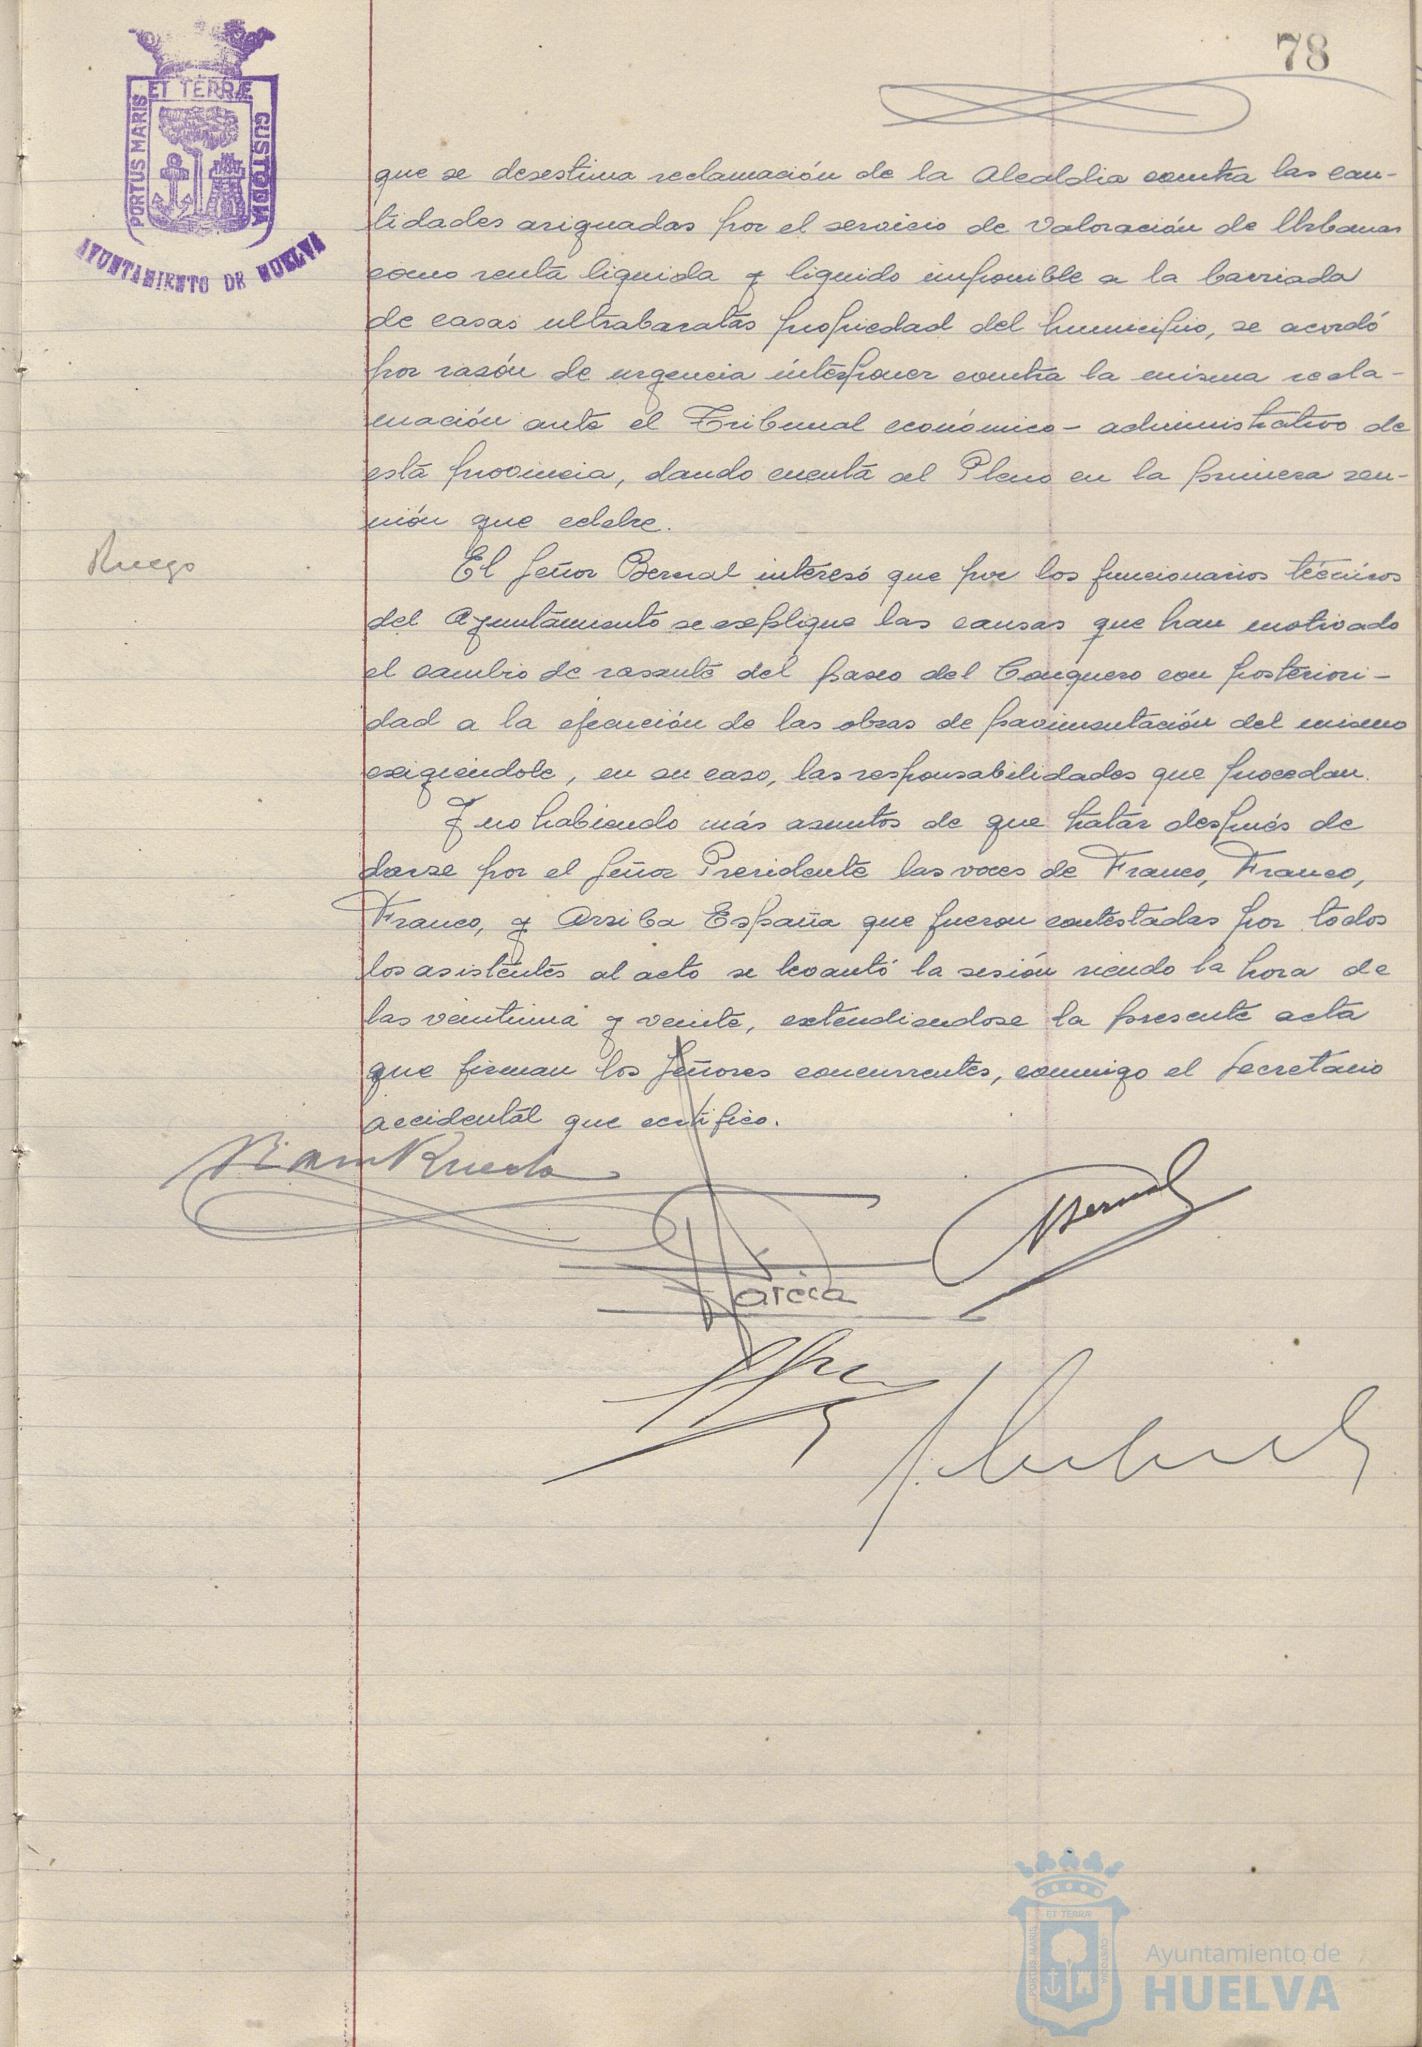 78
ET TERRÆ
PORTUS MARIS
CUSTODIA
AYUNTAMIENTO DE HUELVA
que se desestima reclamación de la Alcaldia contra las can-
tidades asignadas por el servicio de Valoración de Urbanas
como renta liquida y liquido imponible a la barriada
de casas ultrabaratas propiedad del Municipio, se acordó
por razón de urgencia interponer contra la misma recla-
mación ante el Tribunal económico-administrativo de
esta provincia, dando cuenta al Pleno en la primera reu-
nión que celebre.
Ruego
El Señor Bernal interesó que por los funcionarios técnicos
del Ayuntamiento se explique las causas que han motivado
el cambio de rasante del paseo del Conquero con posteriori-
dad a la ejecución de las obras de pavimentación del mismo
exigiendole, en su caso, las responsabilidades que procedan.
Y no habiendo más asuntos de que tratar después de
darse por el Señor Presidente las voces de Franco, Franco,
Franco, y Arriba España que fueron contestadas por todos
los asistentes al acto se levantó la sesión siendo la hora de
las veintiuna y veinte, extendiendose la presente acta
que firman los Señores concurrentes, conmigo el Secretario
accidental que certifico.
Rueda
Bernal
Garcia
ET TERRÆ
PORTUS MARIS
CUSTODIA
Ayuntamiento de
HUELVA